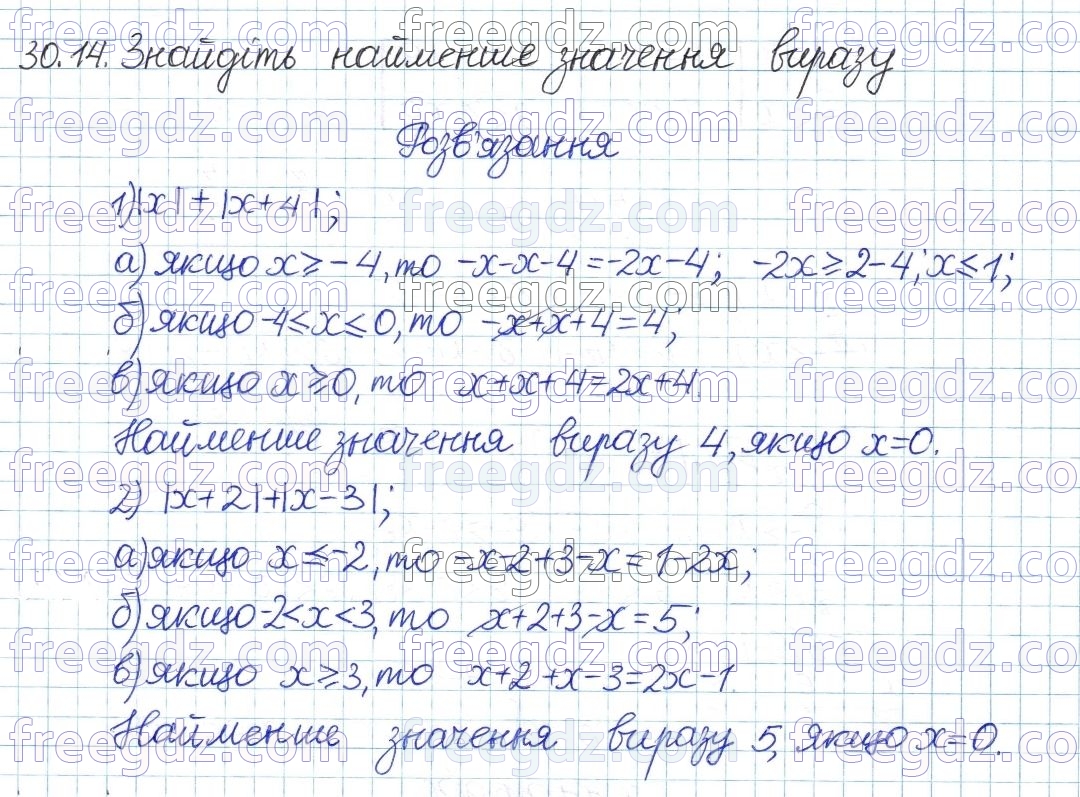 30.14. Знайдіть найменше значення виразу
Розв'язання
1) |x| + |x+4|;
а) якщо x ≥ -4, то -x-x-4 = -2x-4; -2x ≥ 2-4; x ≤ 1;
б) якщо -4 ≤ x ≤ 0, то -x+x+4 = 4;
в) якщо x ≥ 0, то x+x+4 = 2x+4.
Найменше значення виразу 4, якщо x=0.
2) |x+2|+|x-3|;
а) якщо x ≤ -2, то -x-2+3-x = 1-2x;
б) якщо -2 < x < 3, то x+2+3-x = 5;
в) якщо x ≥ 3, то x+2+x-3 = 2x-1.
Найменше значення виразу 5, якщо x=0.